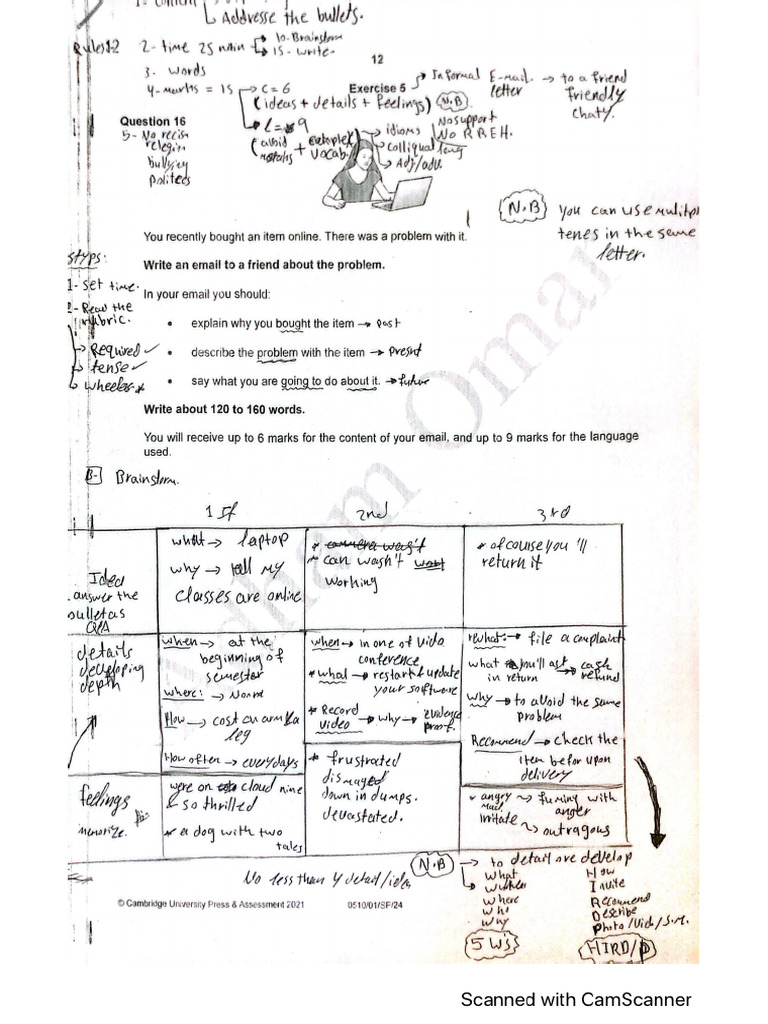 1- Content
↳ Addresse the bullets.
Rules 12
2- time 25 main → 10- Brainstorm
→ 15- write.
12
3. words
4- marks = 15 → c = 6
(ideas + details + feelings) N.B
Exercise 5 → Informal E-mail. → to a friend
letter friendly
chaty.
No support
No R.R.E.H.
Question 16
5- No
bullying
→ idioms
→ colliqual lang
→ Adj/adv.
(avoid + vocab.)
N.B you can use
tenes in the same
letter.
You recently bought an item online. There was a problem with it.
styps:
Write an email to a friend about the problem.
1- set time.
In your email you should:
2- Read the
rubric.
• explain why you bought the item → past
→ Required ✓
• describe the problem with the item → present
→ tense ✓
• say what you are going to do about it. → future
Write about 120 to 160 words.
You will receive up to 6 marks for the content of your email, and up to 9 marks for the language
used.
B- Brainstorm.
1st 2nd 3rd
Idea
answer the
bulletas
Q&A
what → laptop
why → all my
classes are online
* camera wasn't
* can wash't wort
working
* of course you'll
return it
details
developing
depth
when → at the
beginning of
semester
where: →
How → cost an arm & a
leg
How often → everydays
when → in one of Vido
conference
* what → restart & update
your software
* Record
video → why → evidence
proof.
what: → file a complaint
what you'll ask → cash
in return refund
why → to avoid the same
problem
Recommend → check the
item befor upon
delivery
feelings
memorize.
were on cloud nine
& so thrilled
* a dog with two
tales
* frustrated
dismaged
down in dumps.
devastated.
angry → fuming with
mad, anger
irritate → outragous
No less than 4 detail/idea
N.B → to detail ore develop
what
where
who
why
5 W's
How
Invite
Recommend
Describe
photo/Vid/S.M.
HIRD/p
© Cambridge University Press & Assessment 2021
0510/01/SP/24
Adham Omar
Scanned with CamScanner